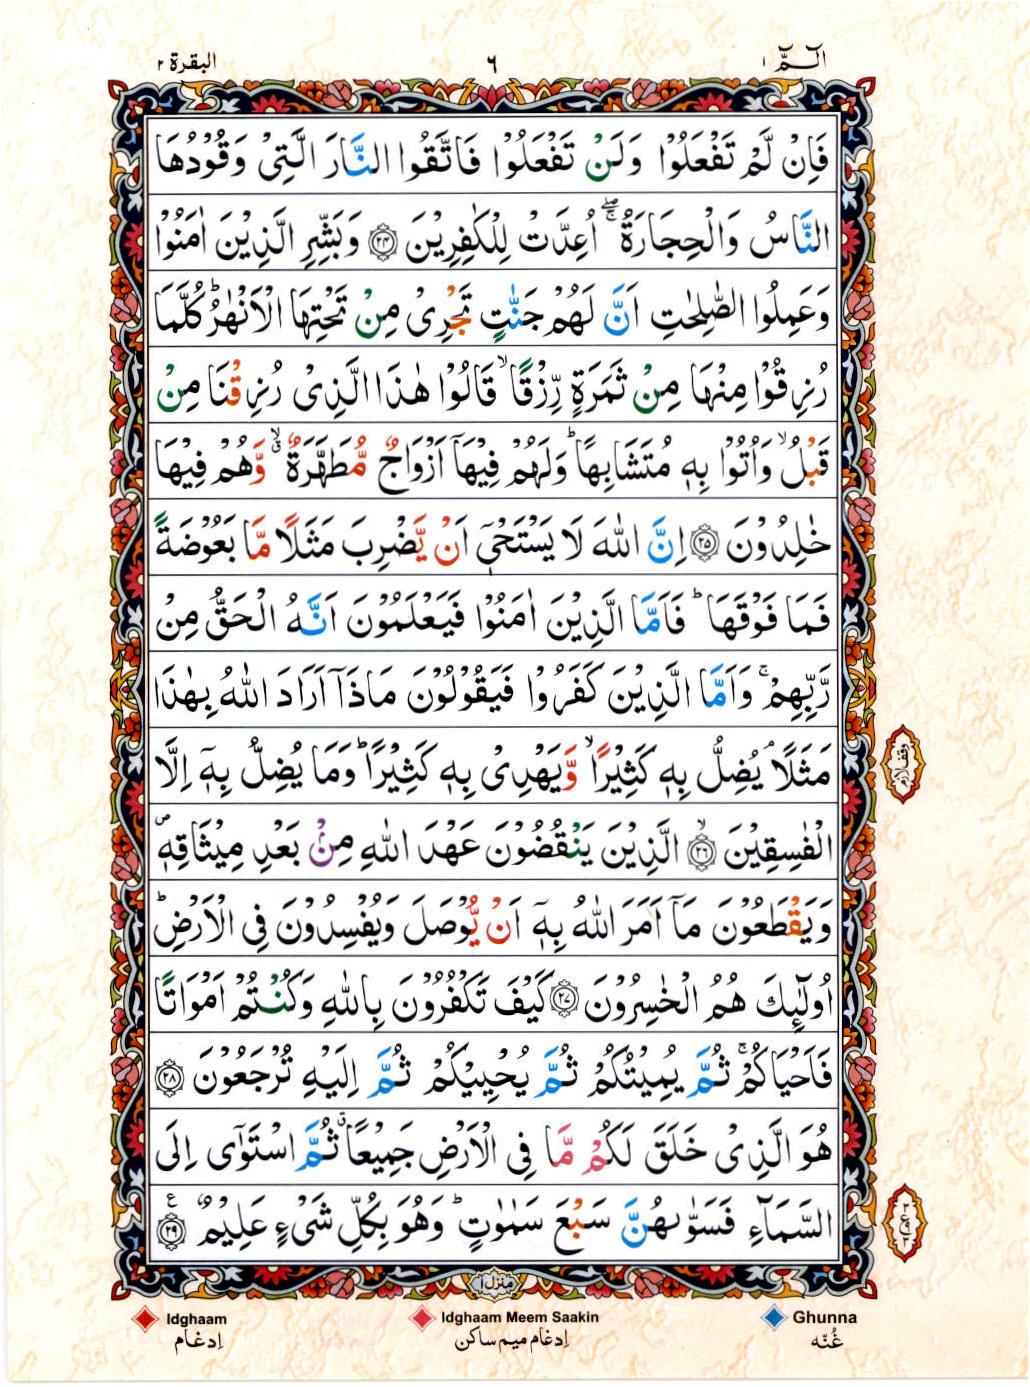 الٓـمّٓ ١
٦
البقرة ٢
فَاِنْ لَّمْ تَفْعَلُوْا وَلَنْ تَفْعَلُوْا فَاتَّقُوا النَّارَ الَّتِىْ وَقُوْدُهَا
النَّاسُ وَالْحِجَارَةُ ۖۚ اُعِدَّتْ لِلْكٰفِرِيْنَ ﴿۲۴﴾ وَبَشِّرِ الَّذِيْنَ اٰمَنُوْا
وَعَمِلُوا الصّٰلِحٰتِ اَنَّ لَهُمْ جَنّٰتٍ تَجْرِىْ مِنْ تَحْتِهَا الْاَنْهٰرُ ؕ كُلَّمَا
رُزِقُوْا مِنْهَا مِنْ ثَمَرَةٍ رِّزْقًا ۙ قَالُوْا هٰذَا الَّذِىْ رُزِقْنَا مِنْ
قَبْلُ ۙ وَاُتُوْا بِهٖ مُتَشَابِهًا ؕ وَلَهُمْ فِيْهَآ اَزْوَاجٌ مُّطَهَّرَةٌ ۙۗ وَّهُمْ فِيْهَا
خٰلِدُوْنَ ﴿۲۵﴾ اِنَّ اللّٰهَ لَا يَسْتَحْىٖٓ اَنْ يَّضْرِبَ مَثَلًا مَّا بَعُوْضَةً
فَمَا فَوْقَهَا ؕ فَاَمَّا الَّذِيْنَ اٰمَنُوْا فَيَعْلَمُوْنَ اَنَّهُ الْحَقُّ مِنْ
رَّبِّهِمْ ۚ وَاَمَّا الَّذِيْنَ كَفَرُوْا فَيَقُوْلُوْنَ مَاذَآ اَرَادَ اللّٰهُ بِهٰذَا
مَثَلًا ۘ يُضِلُّ بِهٖ كَثِيْرًا ۙ وَّيَهْدِىْ بِهٖ كَثِيْرًا ؕ وَمَا يُضِلُّ بِهٖٓ اِلَّا
وقف لازم
الْفٰسِقِيْنَ ﴿۲۶﴾ ۙ الَّذِيْنَ يَنْقُضُوْنَ عَهْدَ اللّٰهِ مِنْۢ بَعْدِ مِيْثَاقِهٖ ۪
وَيَقْطَعُوْنَ مَآ اَمَرَ اللّٰهُ بِهٖٓ اَنْ يُّوْصَلَ وَيُفْسِدُوْنَ فِى الْاَرْضِ ؕ
اُولٰٓئِكَ هُمُ الْخٰسِرُوْنَ ﴿۲۷﴾ كَيْفَ تَكْفُرُوْنَ بِاللّٰهِ وَكُنْتُمْ اَمْوَاتًا
فَاَحْيَاكُمْ ۚ ثُمَّ يُمِيْتُكُمْ ثُمَّ يُحْيِيْكُمْ ثُمَّ اِلَيْهِ تُرْجَعُوْنَ ﴿۲۸﴾
هُوَ الَّذِىْ خَلَقَ لَكُمْ مَّا فِى الْاَرْضِ جَمِيْعًا ۗ ثُمَّ اسْتَوٰٓى اِلَى
السَّمَآءِ فَسَوّٰىهُنَّ سَبْعَ سَمٰوٰتٍ ؕ وَهُوَ بِكُلِّ شَىْءٍ عَلِيْمٌ ﴿۲۹﴾ ع
منزل ١
Idghaam
ادغام
Idghaam Meem Saakin
ادغام میم ساکن
Ghunna
غُنّہ